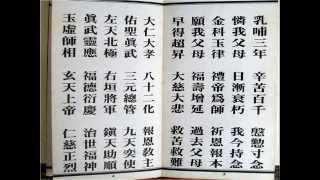 乳哺三年 辛苦百千 慇懃寸念
憐我父母 日漸衰朽 我今持念
金科玉律 禮帝爲師 祈恩報本
願我父母 福壽增延 過去父母
早得超昇 大慈大悲 救苦救難
大仁大孝 八十二化 報恩教主
佑聖眞武 三元總管 九天使
左天北極 右垣將軍 鎭天助順
眞武靈應 福德衍慶 治世福神
玉虛師相 玄天上帝 仁慈正烈